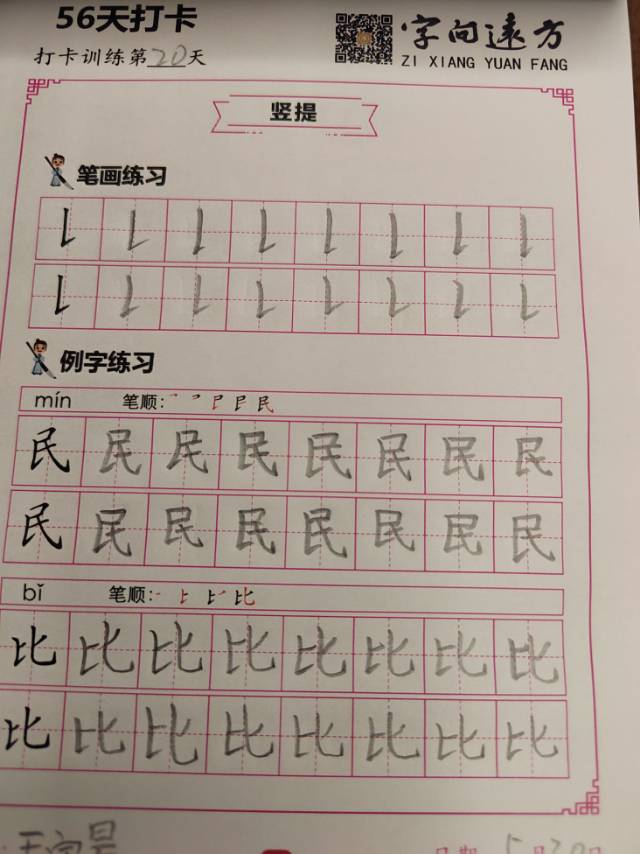 56天打卡
打卡训练第20天
字向远方
ZI XIANG YUAN FANG
竖提
笔画练习
例字练习
mín 笔顺:
民 民 民 民 民 民 民 民
民 民 民 民 民 民 民 民
bǐ 笔顺:
比 比 比 比 比 比 比 比
比 比 比 比 比 比 比 比
5月20日